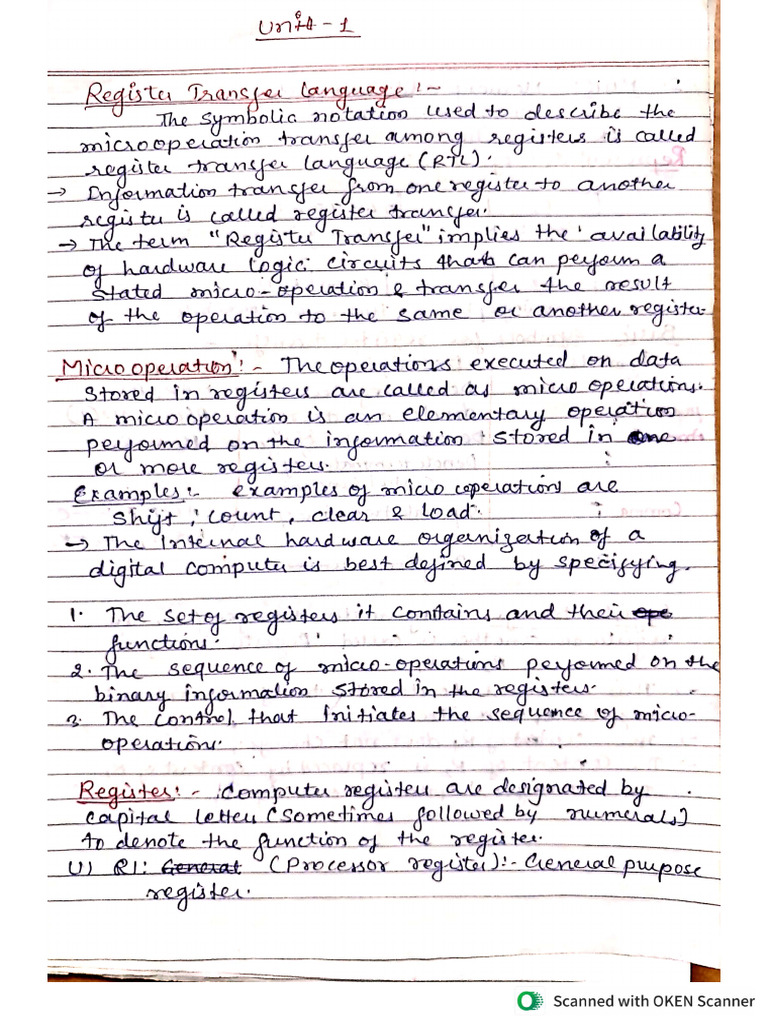 Unit - 1
Register Transfer Language :-
The symbolic notation used to describe the
microoperation transfer among registers is called
register transfer language (RTL).
→ Information transfer from one register to another
register is called register transfer.
→ The term "Register Transfer" implies the availability
of hardware logic circuits that can perform a
stated micro-operation & transfer the result
of the operation to the same or another register
Micro operation :- The operations executed on data
stored in registers are called as micro operations.
A micro operation is an elementary operation
performed on the information stored in one
or more registers.
Examples :- examples of micro operations are
Shift, count, clear & load.
→ The Internal hardware organization of a
digital computer is best defined by specifying.
1. The set of registers it contains and their ope
functions.
2. The sequence of micro-operations performed on the
binary information stored in the registers.
3. The control that initiates the sequence of micro-
operations.
Register :- Computer registers are designated by
capital letters (sometimes followed by numerals)
to denote the function of the register.
(1) R1: General (Processor register) :- General purpose
register.
Scanned with OKEN Scanner